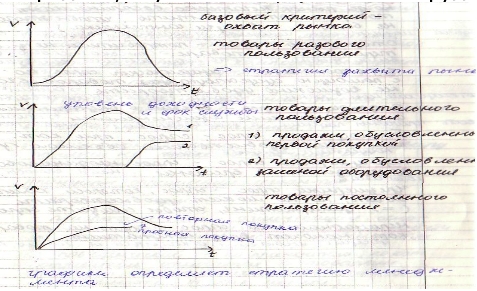 V
базовый критерий -
охват рынка
товары разового
пользования
t
=> стратегия захвата рынка
уровень доходности
и срок службы
V
товары длительного
пользования
1
1) продажи, обусловленны
первой покупкой
2
2) продажи, обусловлен
заменой оборудования
t
V
товары постоянного
пользования
повторная покупка
t
графики определяет стратегию менедж-
мента